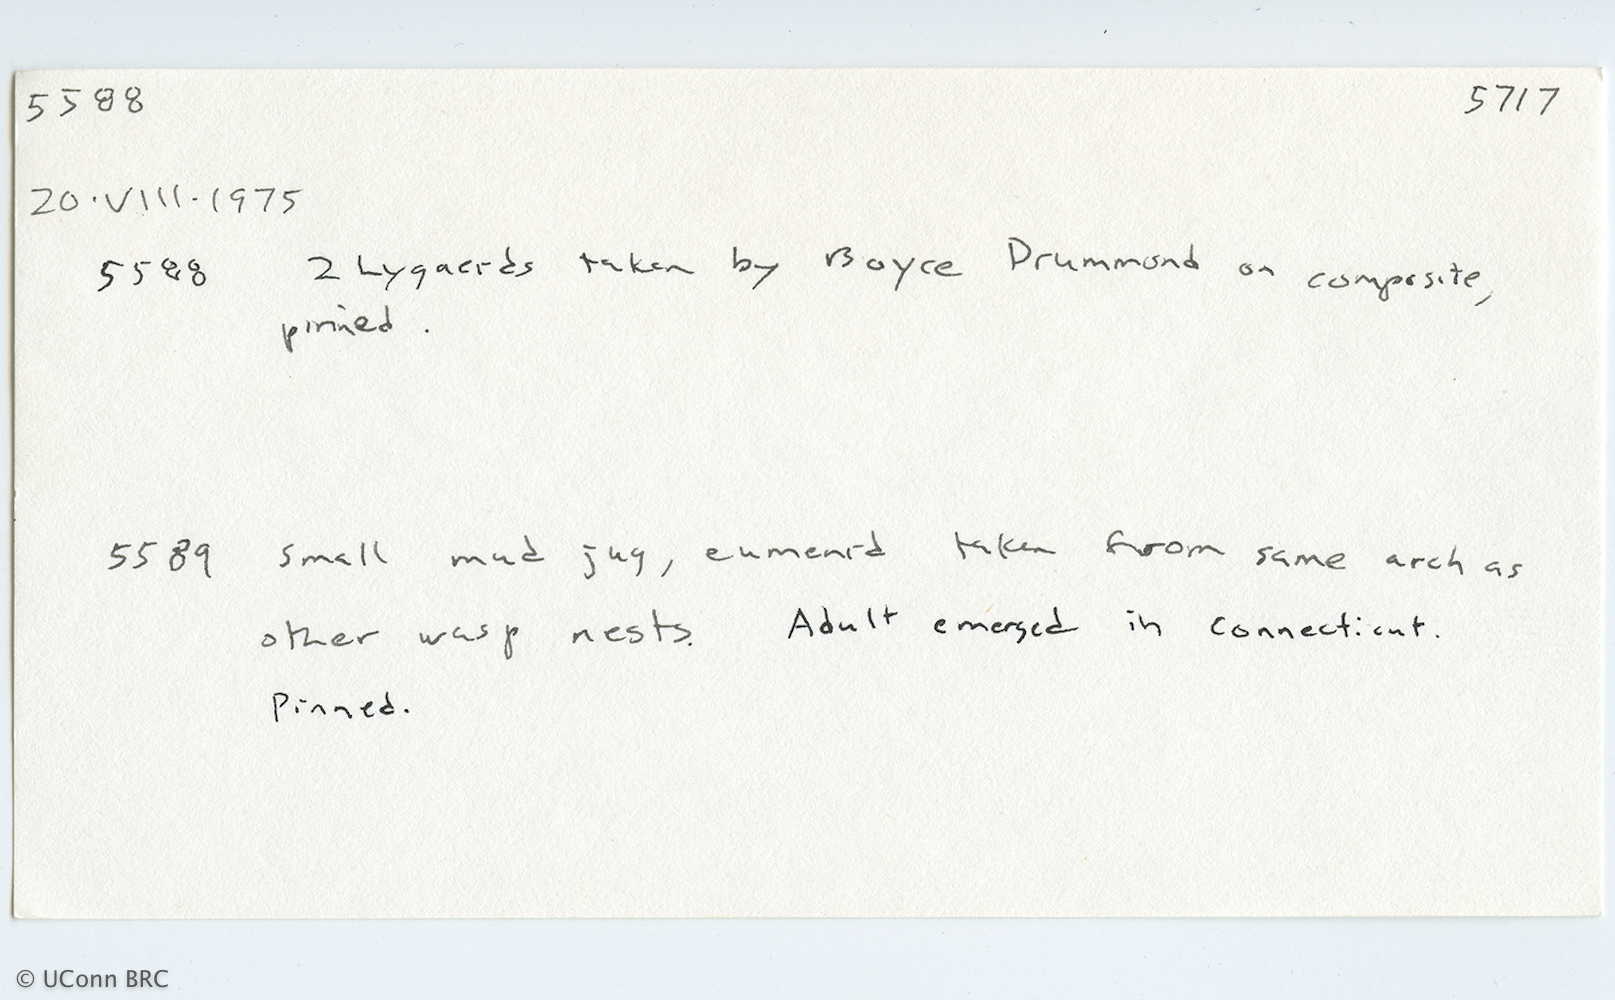 5588 5717
20·VIII·1975
5588 2 Lygaeids taken by Boyce Drummond on composite,
pinned.
5589 small mud jug, eumenid taken from same arch as
other wasp nests. Adult emerged in Connecticut.
Pinned.
© UConn BRC